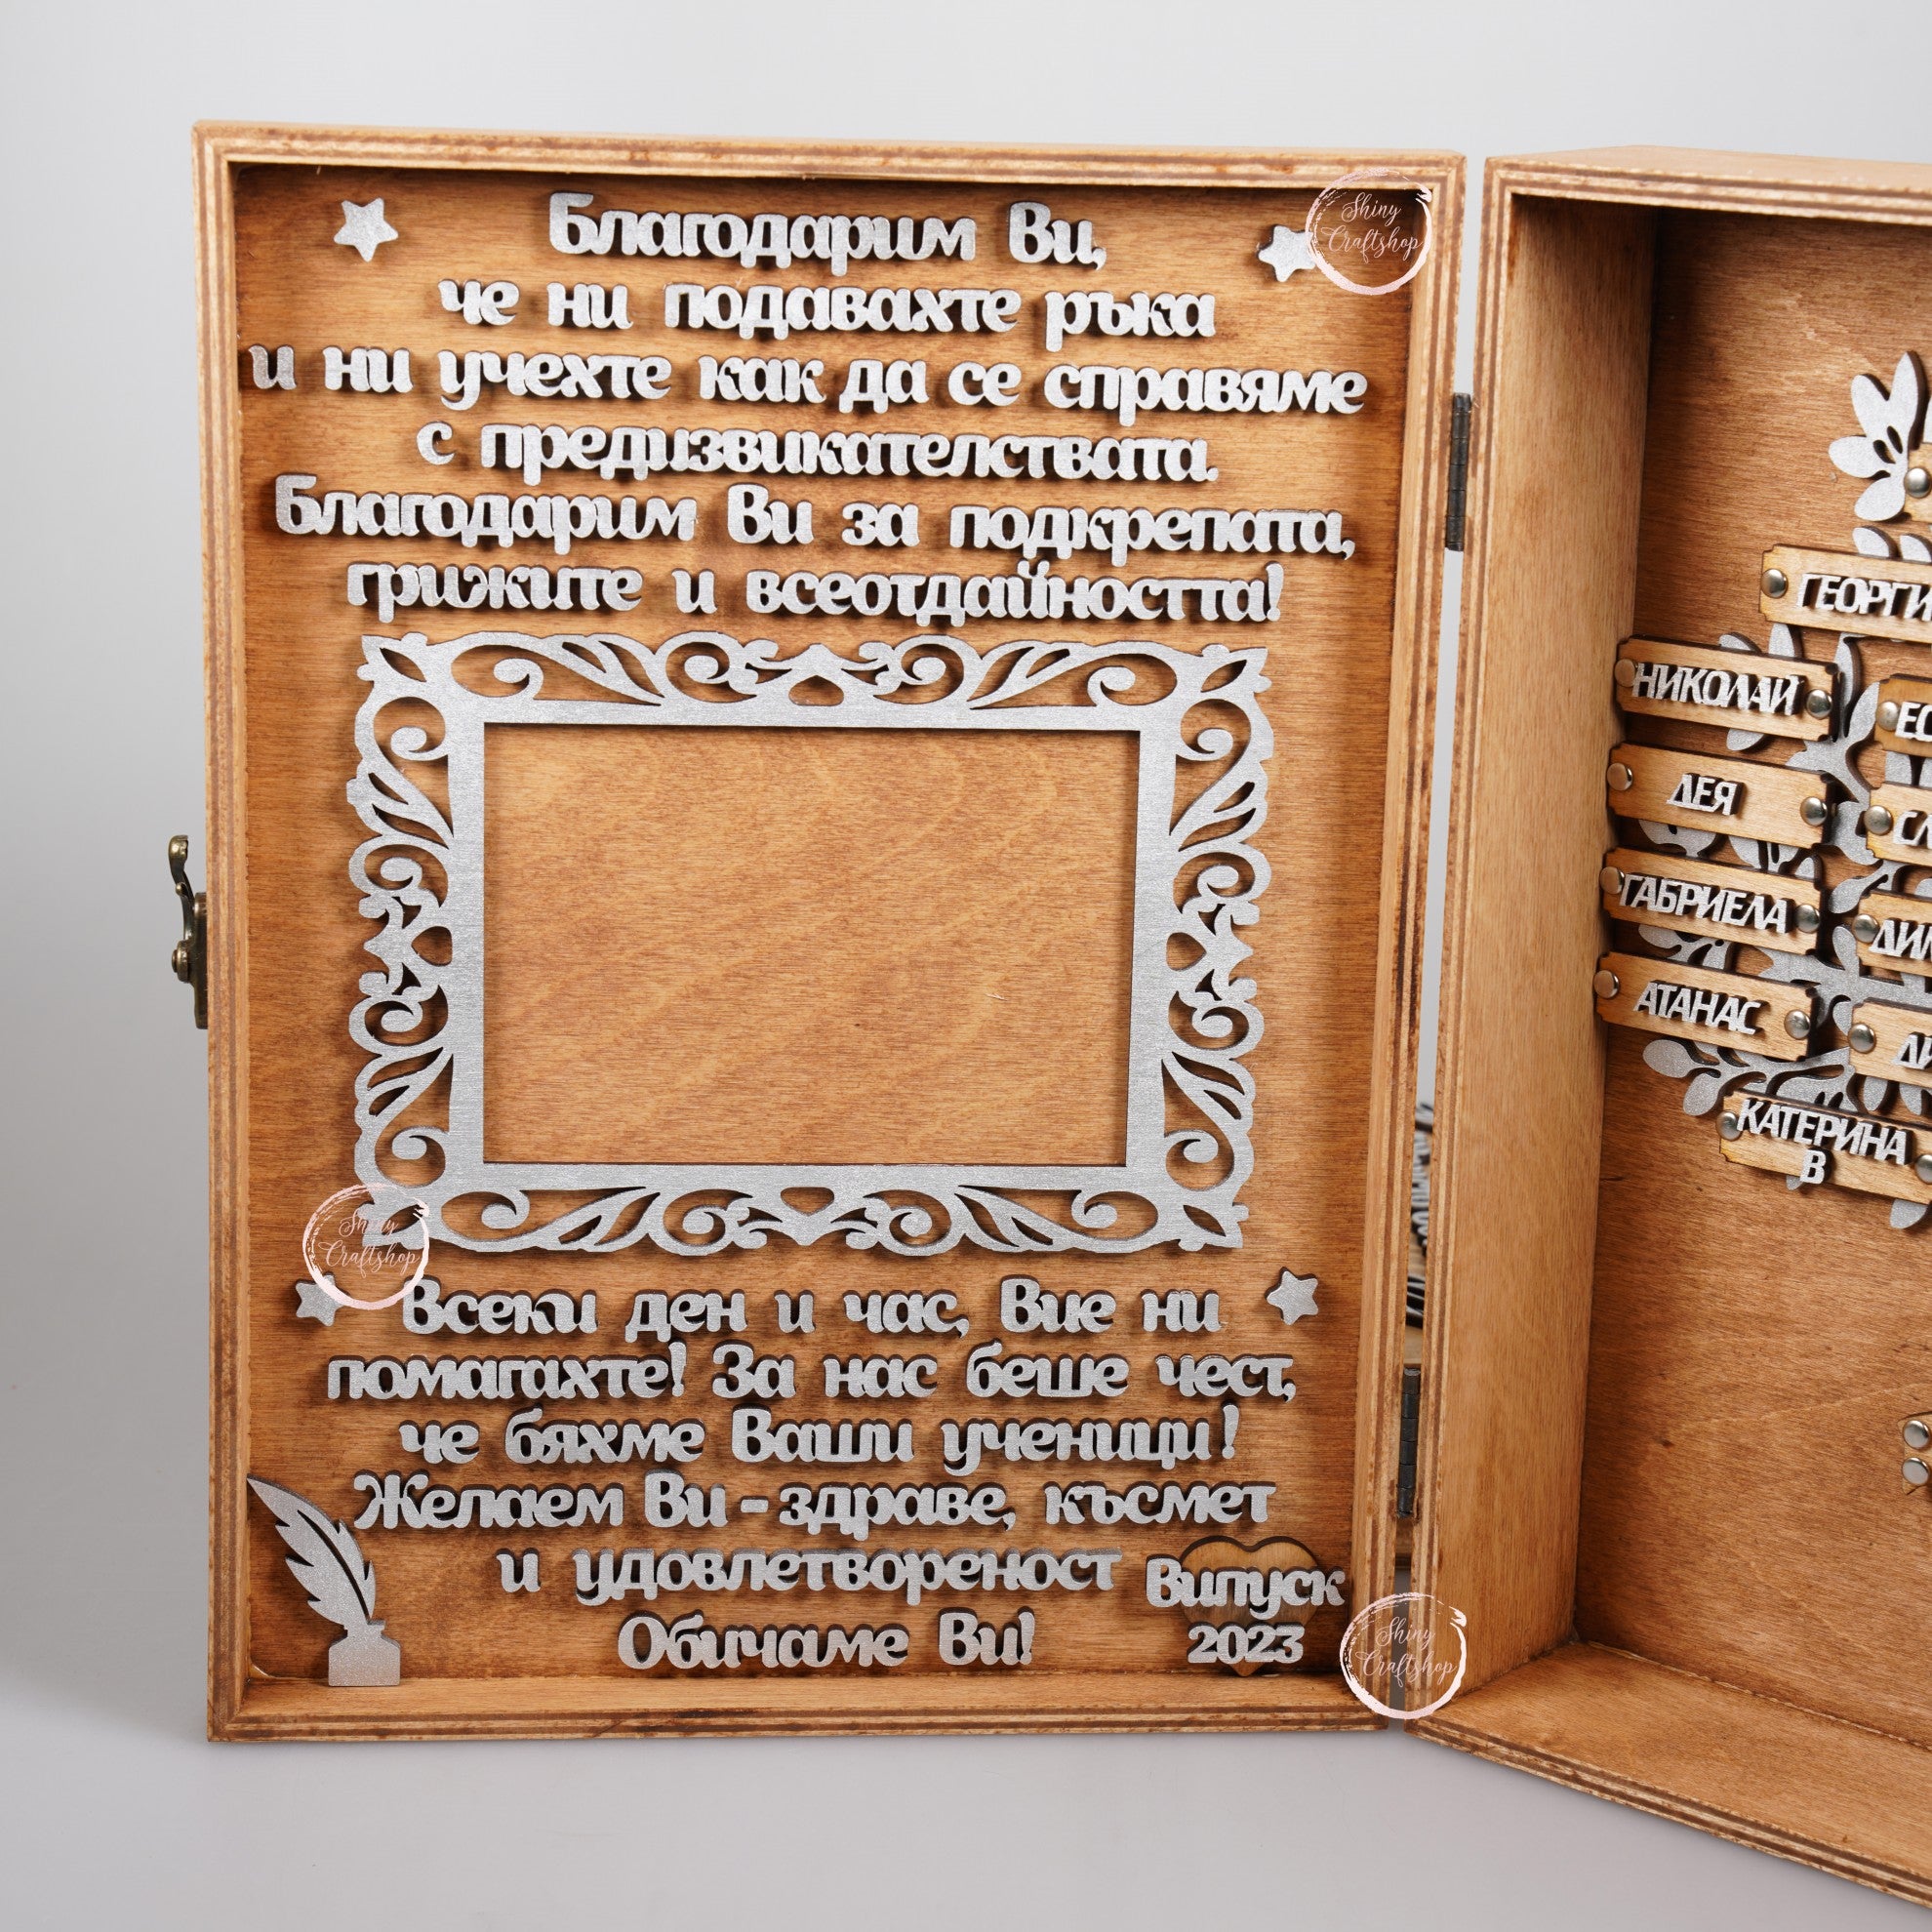 Благодарим Ви,
че ни подавахте ръка
и ни учехте как да се справяме
с предизвикателствата.
Благодарим Ви за подкрепата,
грижите и всеотдайността!
Всеки ден и час, Вие ни
помагахте! За нас беше чест,
че бяхме Ваши ученици!
Желаем Ви - здраве, късмет
и удовлетвореност
Обичаме Ви!
Випуск
2023
НИКОЛАЙ
ДЕЯ
ГАБРИЕЛА
АТАНАС
КАТЕРИНА
В
Shiny
Craftshop
Shiny
Craftshop
Shiny
Craftshop